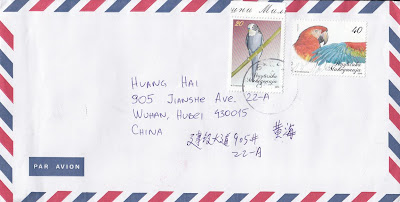 20
40
Република
Македонија
Република
Македонија
HUANG HAI
905 JIANSHE AVE. 22-A
WUHAN, HUBEI 430015
CHINA
建设大道905# 黄海
22-A
PAR AVION